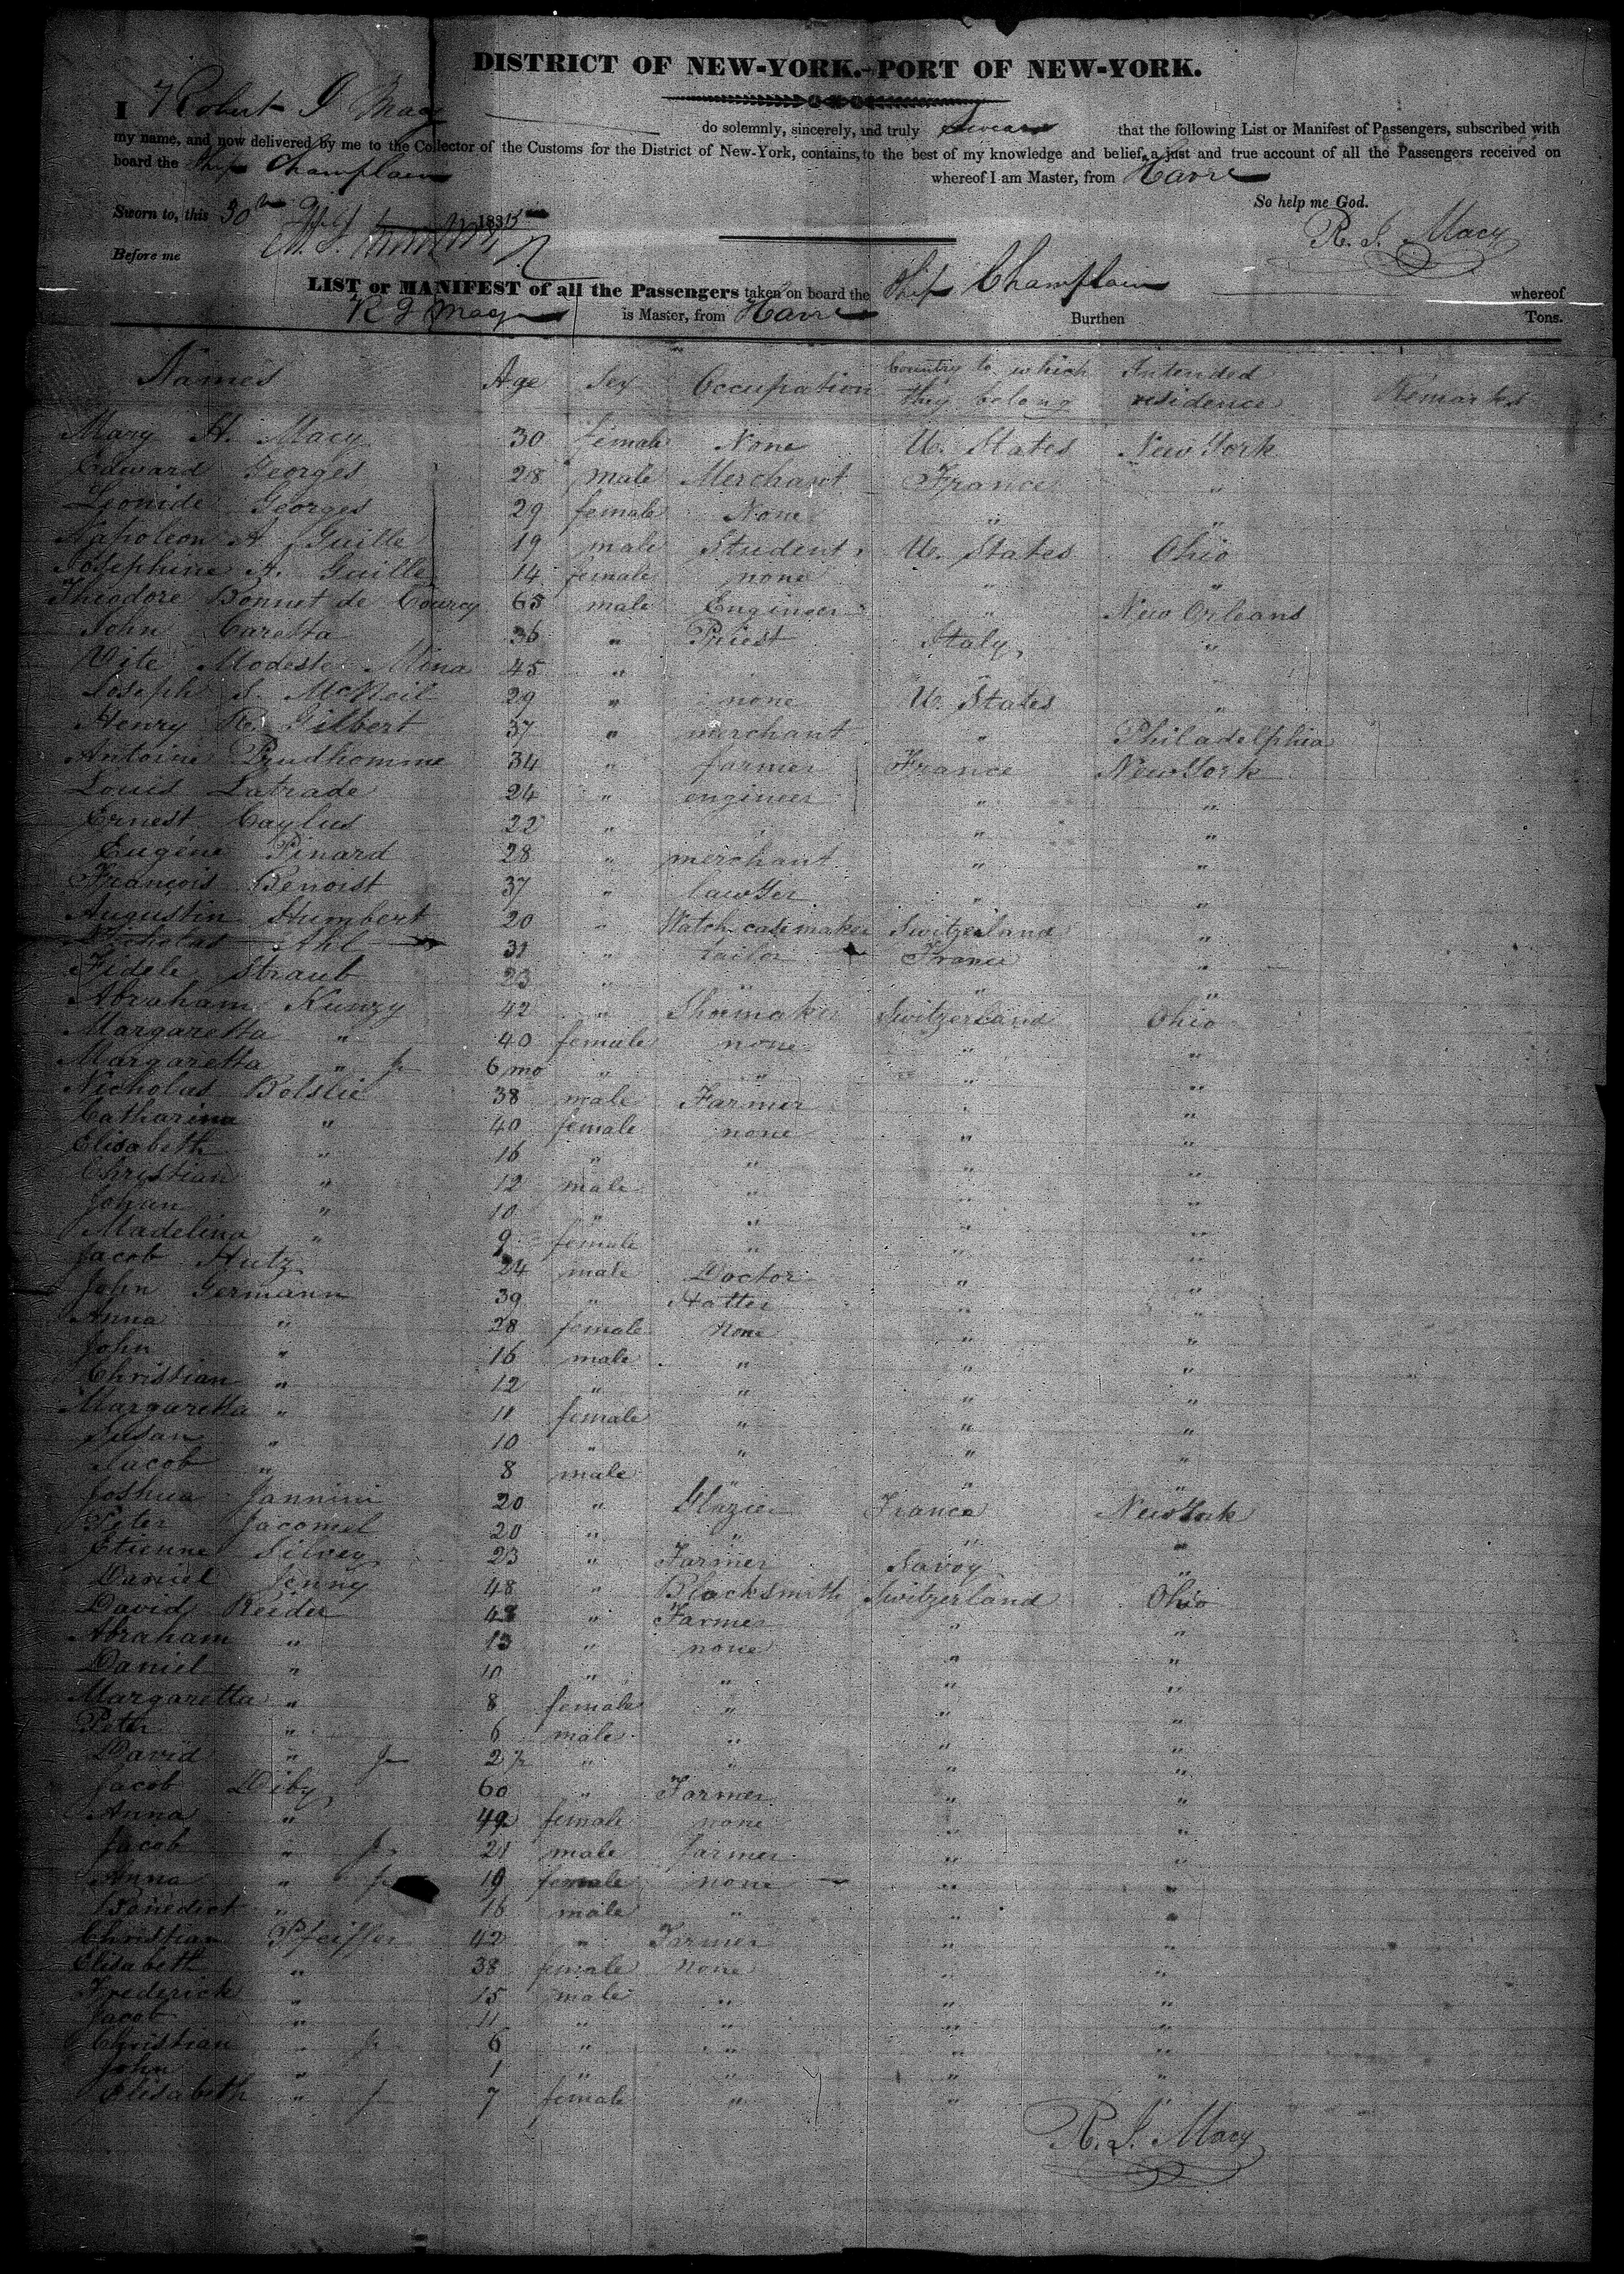 DISTRICT OF NEW-YORK.-PORT OF NEW-YORK.
I Robert J Macy do solemnly, sincerely, and truly Swear that the following List or Manifest of Passengers, subscribed with
my name, and now delivered by me to the Collector of the Customs for the District of New-York, contains, to the best of my knowledge and belief, a just and true account of all the Passengers received on
board the Ship Champlain whereof I am Master, from Havre
So help me God.
Sworn to, this 30th 1835
R. J. Macy
Before me
LIST or MANIFEST of all the Passengers taken on board the Ship Champlain whereof
R J Macy is Master, from Havre Burthen Tons.
Names Age Sex Occupation Country to which they belong Intended residence Remarks
Mary H. Macy 30 female None U. States New York
Edward Georges 28 male Merchant France "
Leonide Georges 29 female None " "
Napoleon A. Guille 19 male Student U. States Ohio
Josephine A. Guille 14 female none " "
Theodore Bonnet de Courcy 65 male Engineer " New Orleans
John Caretta 36 " Priest Italy "
Vite Modeste Mina 45 " " " "
Joseph S. McNeil 29 " none U. States "
Henry R. Gilbert 37 " merchant " Philadelphia
Antoine Prudhomme 34 " farmer France New York
Louis Latrade 24 " engineer " "
Ernest Caylus 22 " " " "
Eugène Pinard 28 " merchant " "
François Benoist 37 " lawyer " "
Augustin Humbert 20 " Watch case maker Switzerland "
Nicholas Ahl 31 " tailor France "
Fidele Straub 23 " " " "
Abraham Kunzy 42 " Shoemaker Switzerland Ohio
Margaretta " 40 female none " "
Margaretta " Jr 6 mo " " " "
Nicholas Bolslie 38 male Farmer " "
Catharina " 40 female none " "
Elisabeth " 16 " " " "
Christian " 12 male " " "
Johan " 10 " " " "
Madelina " 9 female " " "
Jacob Hutz 24 male Doctor " "
John Germann 39 " Hatter " "
Anna " 28 female None " "
John " 16 male " " "
Christian " 12 " " " "
Margaretta " 11 female " " "
Susan " 10 " " " "
Jacob " 8 male " " "
Joshua Jannini 20 " Glazier France New York
Peter Jacomel 20 " " " "
Etienne Silvey 23 " Farmer Savoy "
Daniel Jenny 48 " Blacksmith Switzerland Ohio
David Reider 48 " Farmer " "
Abraham " 13 " none " "
Daniel " 10 " " " "
Margaretta " 8 female " " "
Peter " 6 male " " "
David " Jr 2 " " " "
Jacob Diby 60 " Farmer " "
Anna " 49 female none " "
Jacob " Jr 21 male farmer " "
Anna " Jr 19 female none " "
Benedict " 16 male " " "
Christian Pfeiffer 42 " Farmer " "
Elisabeth " 38 female None " "
Frederick " 15 male " " "
Jacob " 11 " " " "
Christian " Jr 6 " " " "
John " 1 " " " "
Elisabeth " Jr 7 female " "
R. J. Macy